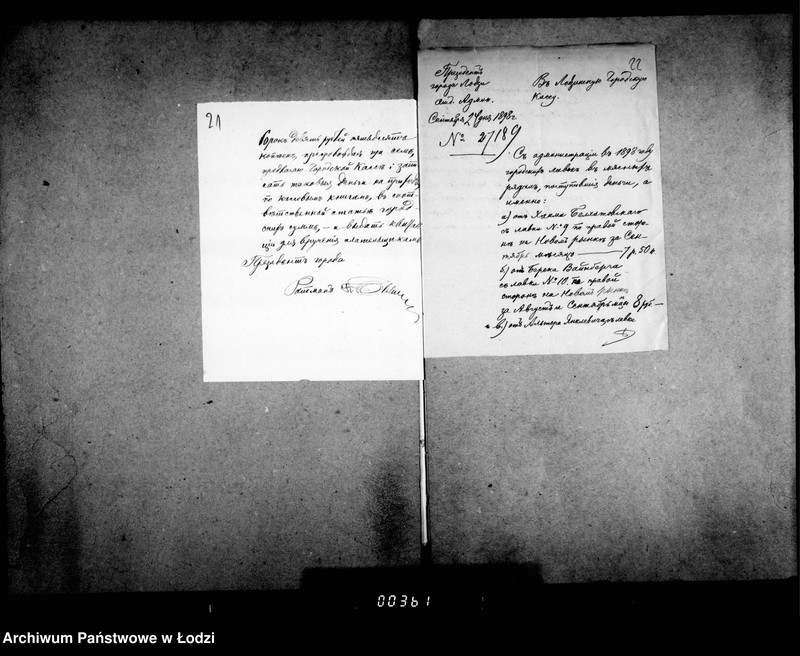 21
сорокъ девять рублей пятьдесятъ
копѣекъ, препровождая при семъ,
предлагаю Городской Кассѣ: запи-
сать таковыя деньги на приходъ
по кассовымъ книгамъ, въ соот-
вѣтственной статьѣ город-
скихъ суммъ, — и выдать квитан-
ціи для врученія плательщикамъ
Президентъ города
Ратманъ
22
Президентъ
города Лодзи
Сентября 24 дня 1898 г.
№ 27189
Въ Лодзинскую Городскую
Кассу.
Съ администраціи въ 1898 году
городскихъ лавокъ въ мясныхъ
рядахъ, поступившія деньги, а
именно:
а) отъ Хаима Белхатовскаго
съ лавки № 9 по правой сторо-
нѣ на Новомъ рынкѣ за Сен-
тябрь мѣсяцъ — 7 р. 50 к.
б) отъ Берека Вайнберга
съ лавки № 10, по правой
сторонѣ на Новомъ рынкѣ
за Августъ и Сентябрь м-цы 8 руб —
и в) отъ Альтера Янкелевича съ лавки
00361
Archiwum Państwowe w Łodzi